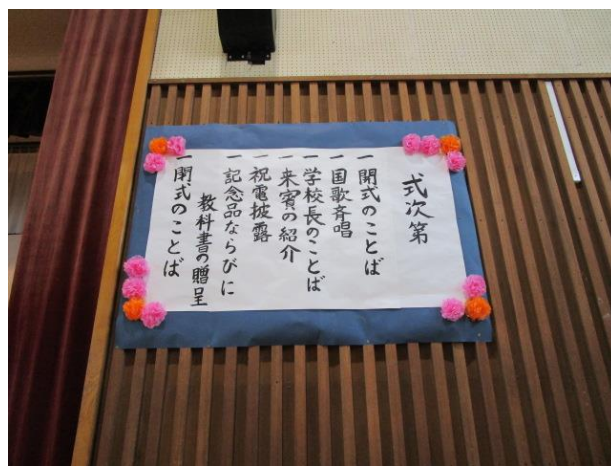 式次第
一 開式のことば
一 国歌斉唱
一 学校長のことば
一 来賓の紹介
一 祝電披露
一 記念品ならびに
教科書の贈呈
一 閉式のことば